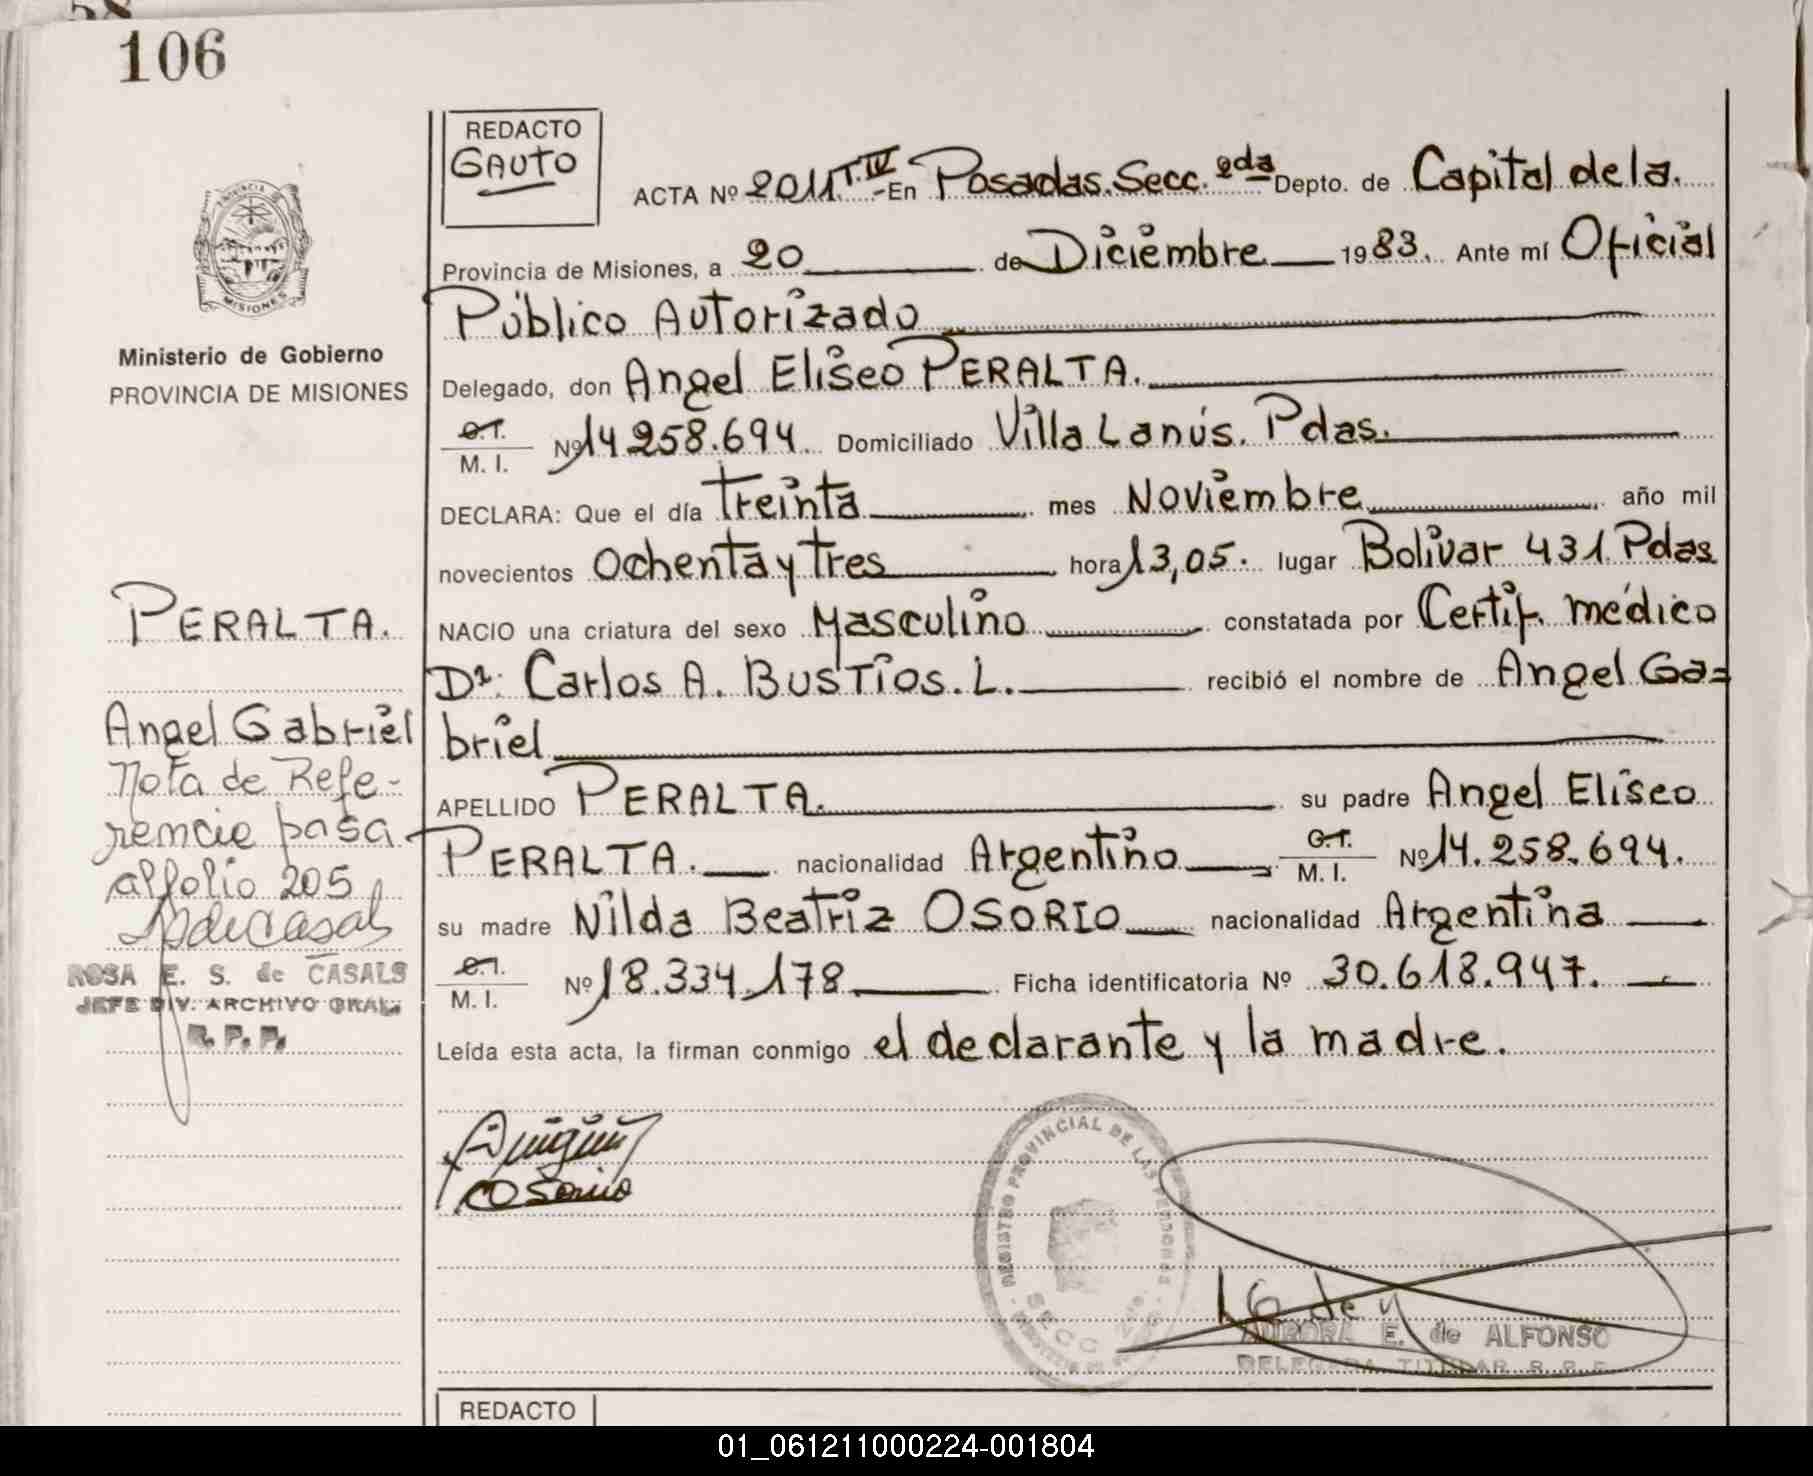 106
REDACTO
GAUTO
ACTA Nº 2011 T.IV - En Posadas. Secc. 2da Depto. de Capital de la
Provincia de Misiones, a 20 de Diciembre 1983. Ante mí Oficial
Público Autorizado
Delegado, don Angel Eliseo PERALTA.
C.I. M. I. Nº 14.258.694. Domiciliado Villa Lanús. Pdas.
DECLARA: Que el día treinta mes Noviembre año mil
novecientos Ochenta y tres hora 13,05. lugar Bolívar 431 Pdas
NACIO una criatura del sexo Masculino constatada por Certif. médico
Dr. Carlos A. BUSTIOS. L. recibió el nombre de Angel Ga=
briel
APELLIDO PERALTA. su padre Angel Eliseo
PERALTA. nacionalidad Argentino C.I. M. I. Nº 14.258.694.
su madre Nilda Beatriz OSORIO nacionalidad Argentina
C.I. M. I. Nº 18.334.178 Ficha identificatoria Nº 30.618.947.
Leída esta acta, la firman conmigo el declarante y la madre.
Osorio
PROVINCIA DE
MISIONES
Ministerio de Gobierno
PROVINCIA DE MISIONES
PERALTA.
Angel Gabriel
Nota de Refe-
rencia pasa
al folio 205
ROSA E. S. de CASALS
JEFE DIV. ARCHIVO GRAL.
R. P. P.
REGISTRO PROVINCIAL DE LAS PERSONAS
SECC
AURORA E. de ALFONSO
DELEGADA TITULAR R. P. P.
REDACTO
01_061211000224-001804